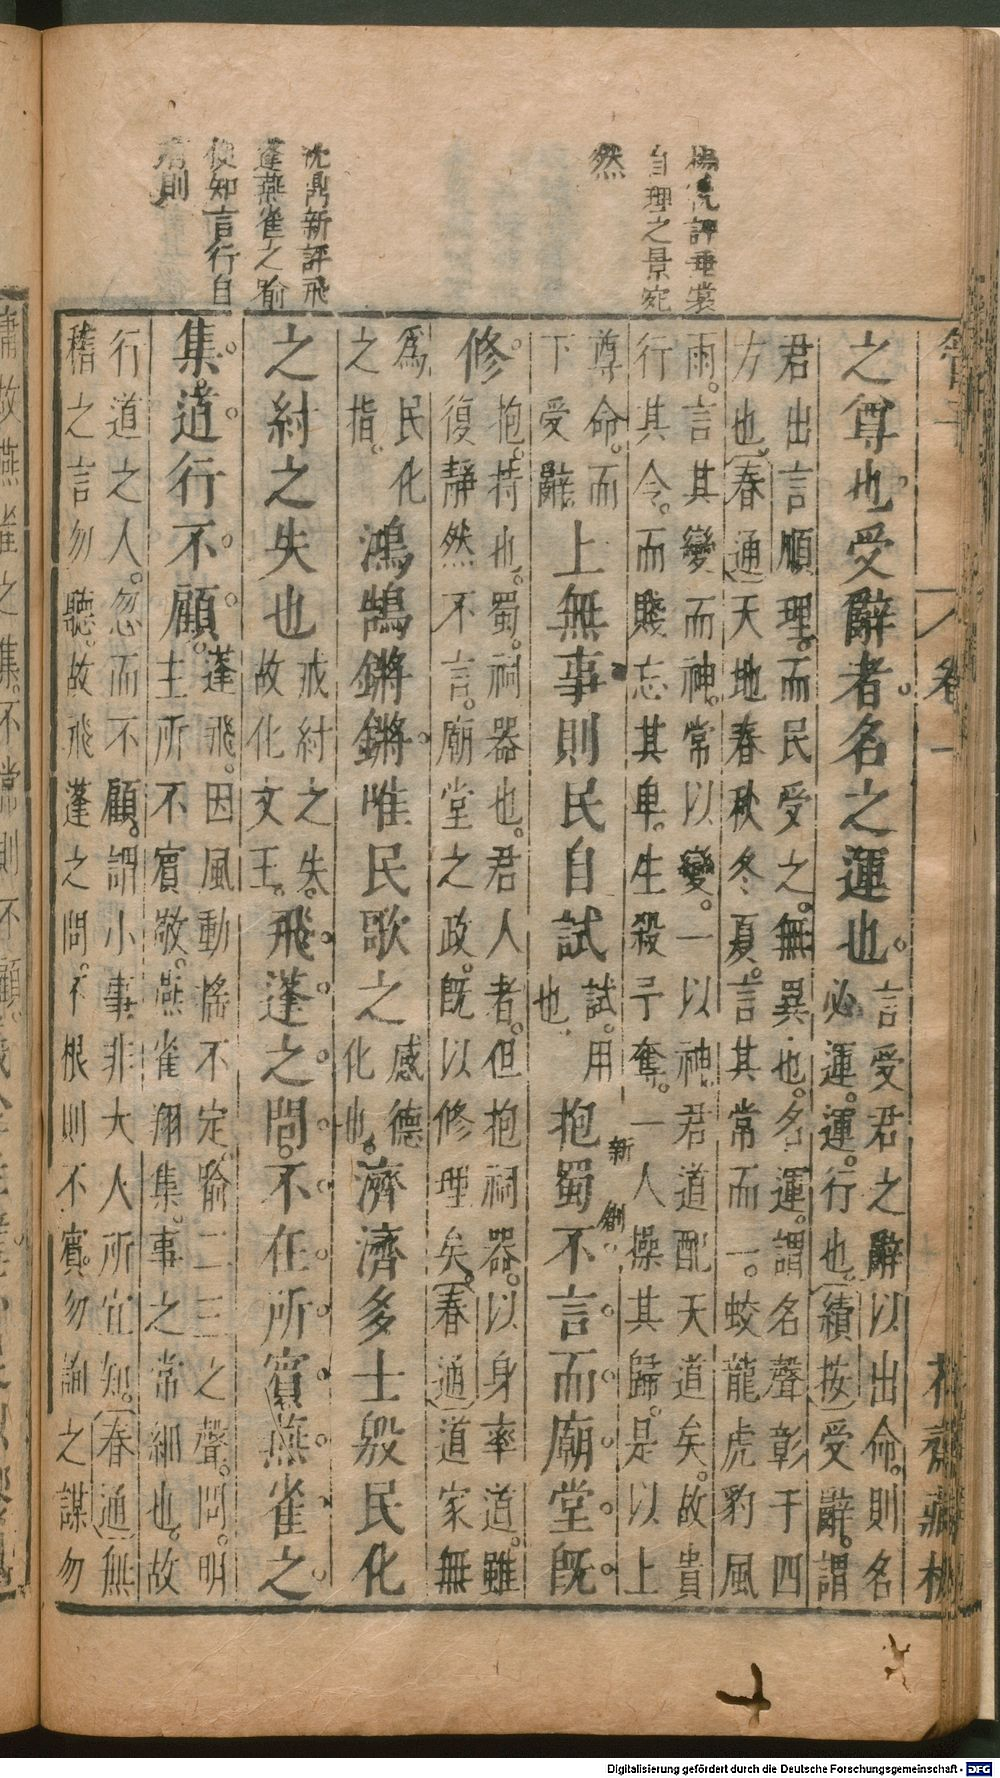 楊忱評垂裳
自理之景宛
然
沈鼎新評飛
蓬燕雀之喻
使知言行自
有則
管子
卷一
花齋藏板
之尊也受辭者名之運也
言受君之辭以出命則名
必運運行也續按受辭謂
君出言順理而民受之無異也名運謂名聲彰于四
方也春通天地春秋冬夏言其常而一蛟龍虎豹風
雨言其變而神常以變一以神君道配天道矣故貴
行其令而賤忘其卑生殺予奪一人操其歸是以上
尊命而
下受辭
上無事則民自試
試用
也
抱蜀不言而廟堂既
修
抱持也蜀祠器也君人者但抱祠器以身率道雖
復靜然不言廟堂之政既以修理矣春通道家無
為民化
之指
鴻鵠鏘鏘唯民歌之
感德
化也
濟濟多士殷民化
之紂之失也
戒紂之失
故化文王
飛蓬之問不在所賓燕雀之
集道行不顧
蓬飛因風動搖不定喻二三之聲問明
主所不賓敬燕雀翔集事之常細也故
行道之人忽而不顧謂小事非大人所宜知春通無
稽之言勿聽故飛蓬之問不根則不賓勿詢之謀勿
新
劖
庸故燕雀之集不常則不顧
Digitalisierung gefördert durch die Deutsche Forschungsgemeinschaft - DFG